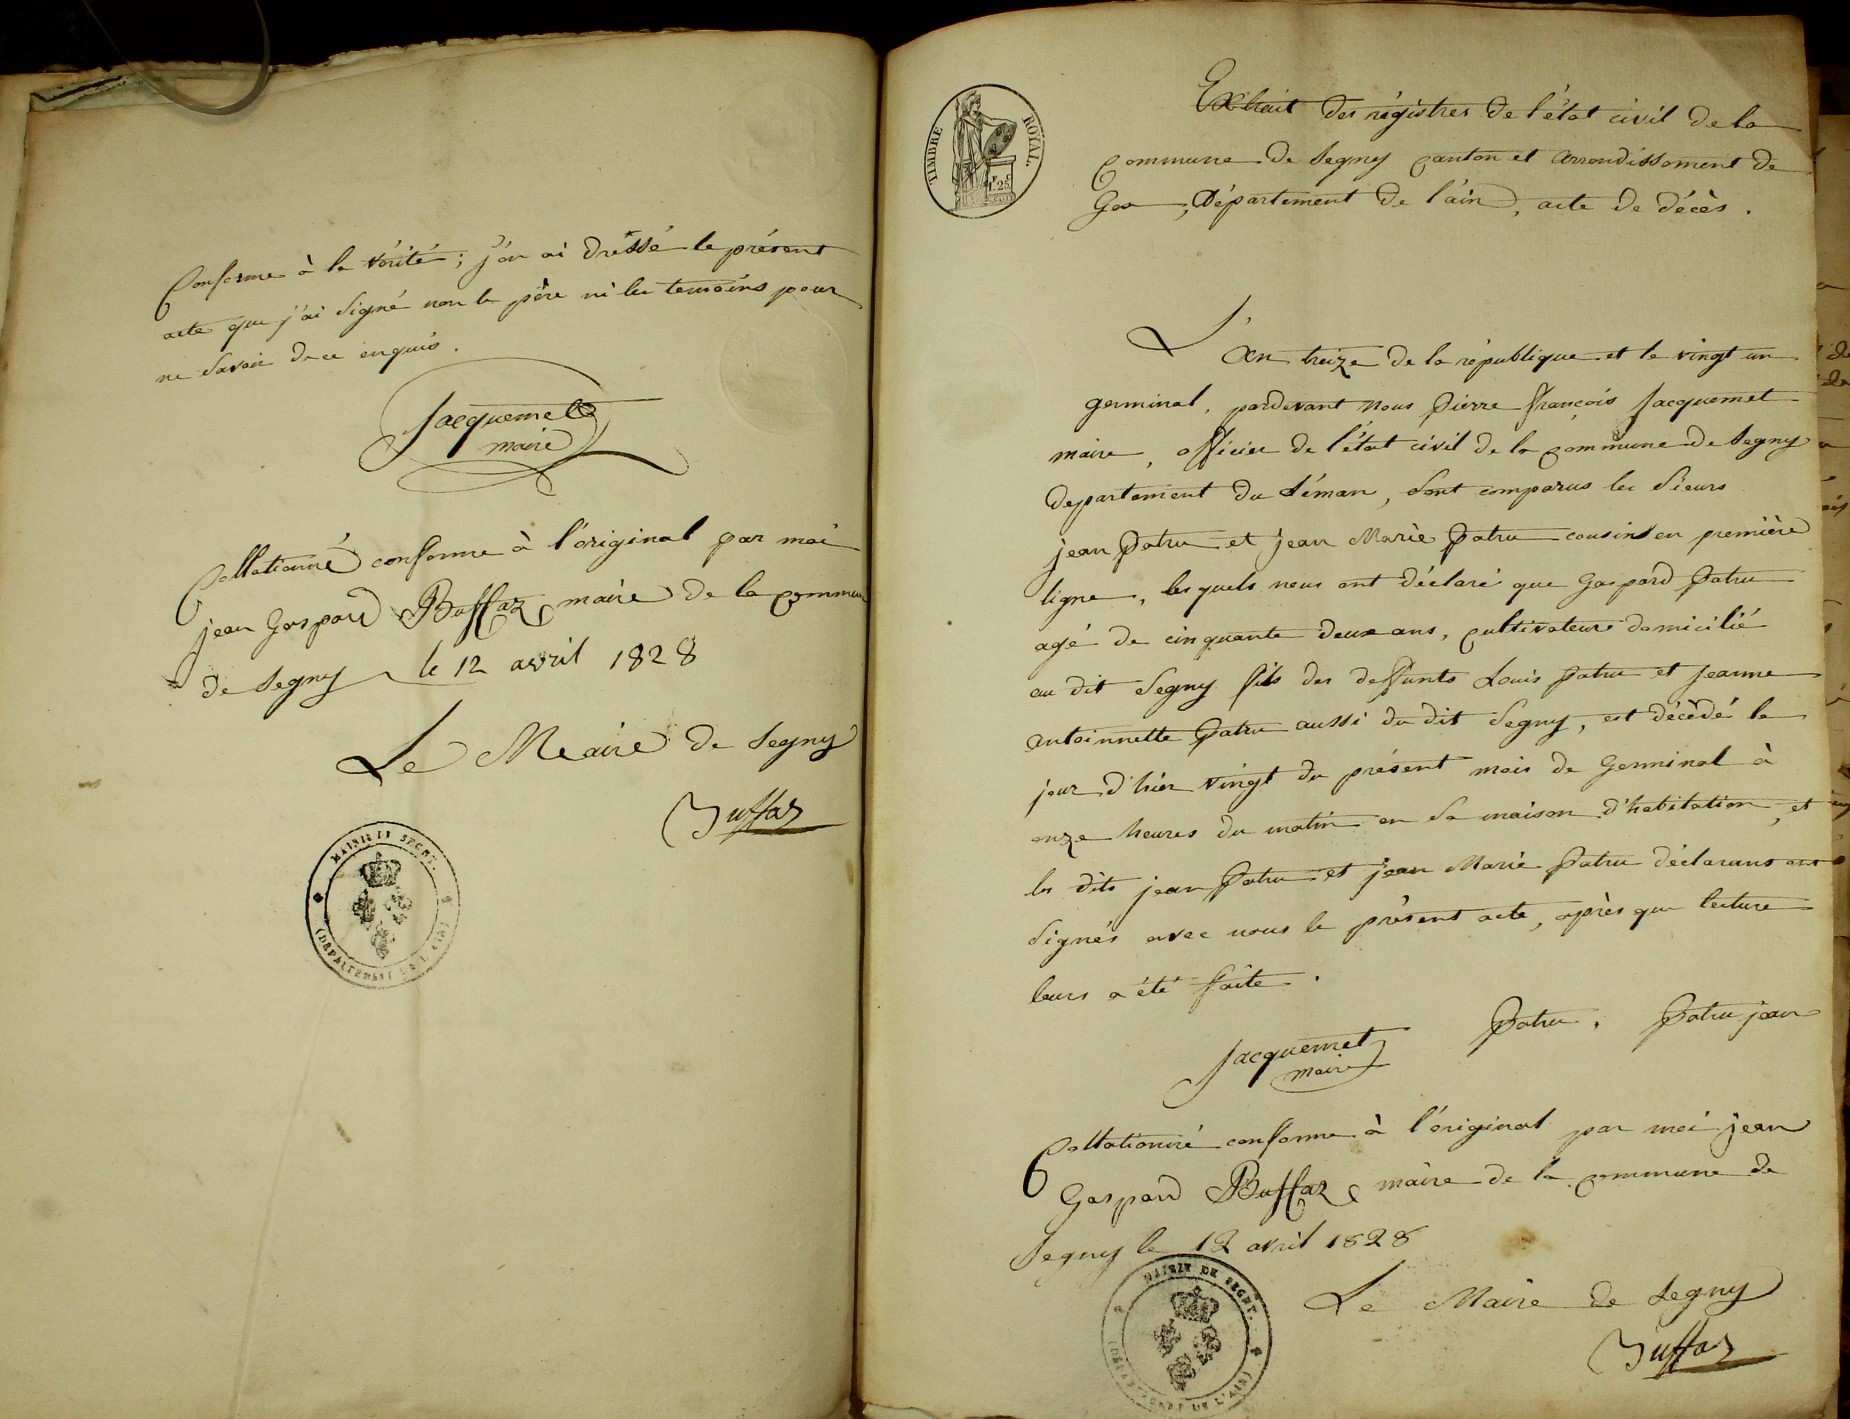 Conforme à la vérité ; j'en ai dressé le présent
acte que j'ai signé non le père ni les temoins pour
ne savoir de ce enquis.
Jacquemet
maire
Collationné conforme à l'original par moi
jean Gaspard Buffaz maire de la commune
de Segny le 12 avril 1828
Le Maire de Segny
Buffaz
MAIRIE DE SEGNY.
(DÉPARTEMENT DE L'AIN)
TIMBRE ROYAL.
1.25
Extrait des régistres de l'état civil de la
commune de Segny canton et arrondissement de
Gex, Département de l'ain, acte de décès.
L'an treize de la république et le vingt un
germinal, pardevant nous pierre françois jacquemet
maire, officier de l'état civil de la commune de Segny
departement du Léman, sont comparus les sieurs
jean patru et jean Marie patru cousins en première
ligne, lesquels nous ont déclaré que gaspard patru
agé de cinquante deux ans, cultivateur domicilié
au dit Segny fils des deffunts Louis patru et jeanne
antoinnette patru aussi du dit Segny, est décèdé le
jour d'hier vingt du présent mois de germinal à
onze heures du matin en sa maison d'habitation, et
les dits jean patru et jean Marie patru déclarans ont
signés avec nous le présent acte, après que lecture
leurs a été faite.
Jacquemet
maire
patru. patru jean
Collationné conforme à l'original par moi jean
Gaspard Buffaz maire de la commune de
Segny le 12 avril 1828
Le Maire de Segny
Buffaz
MAIRIE DE SEGNY.
(DÉPARTEMENT DE L'AIN)